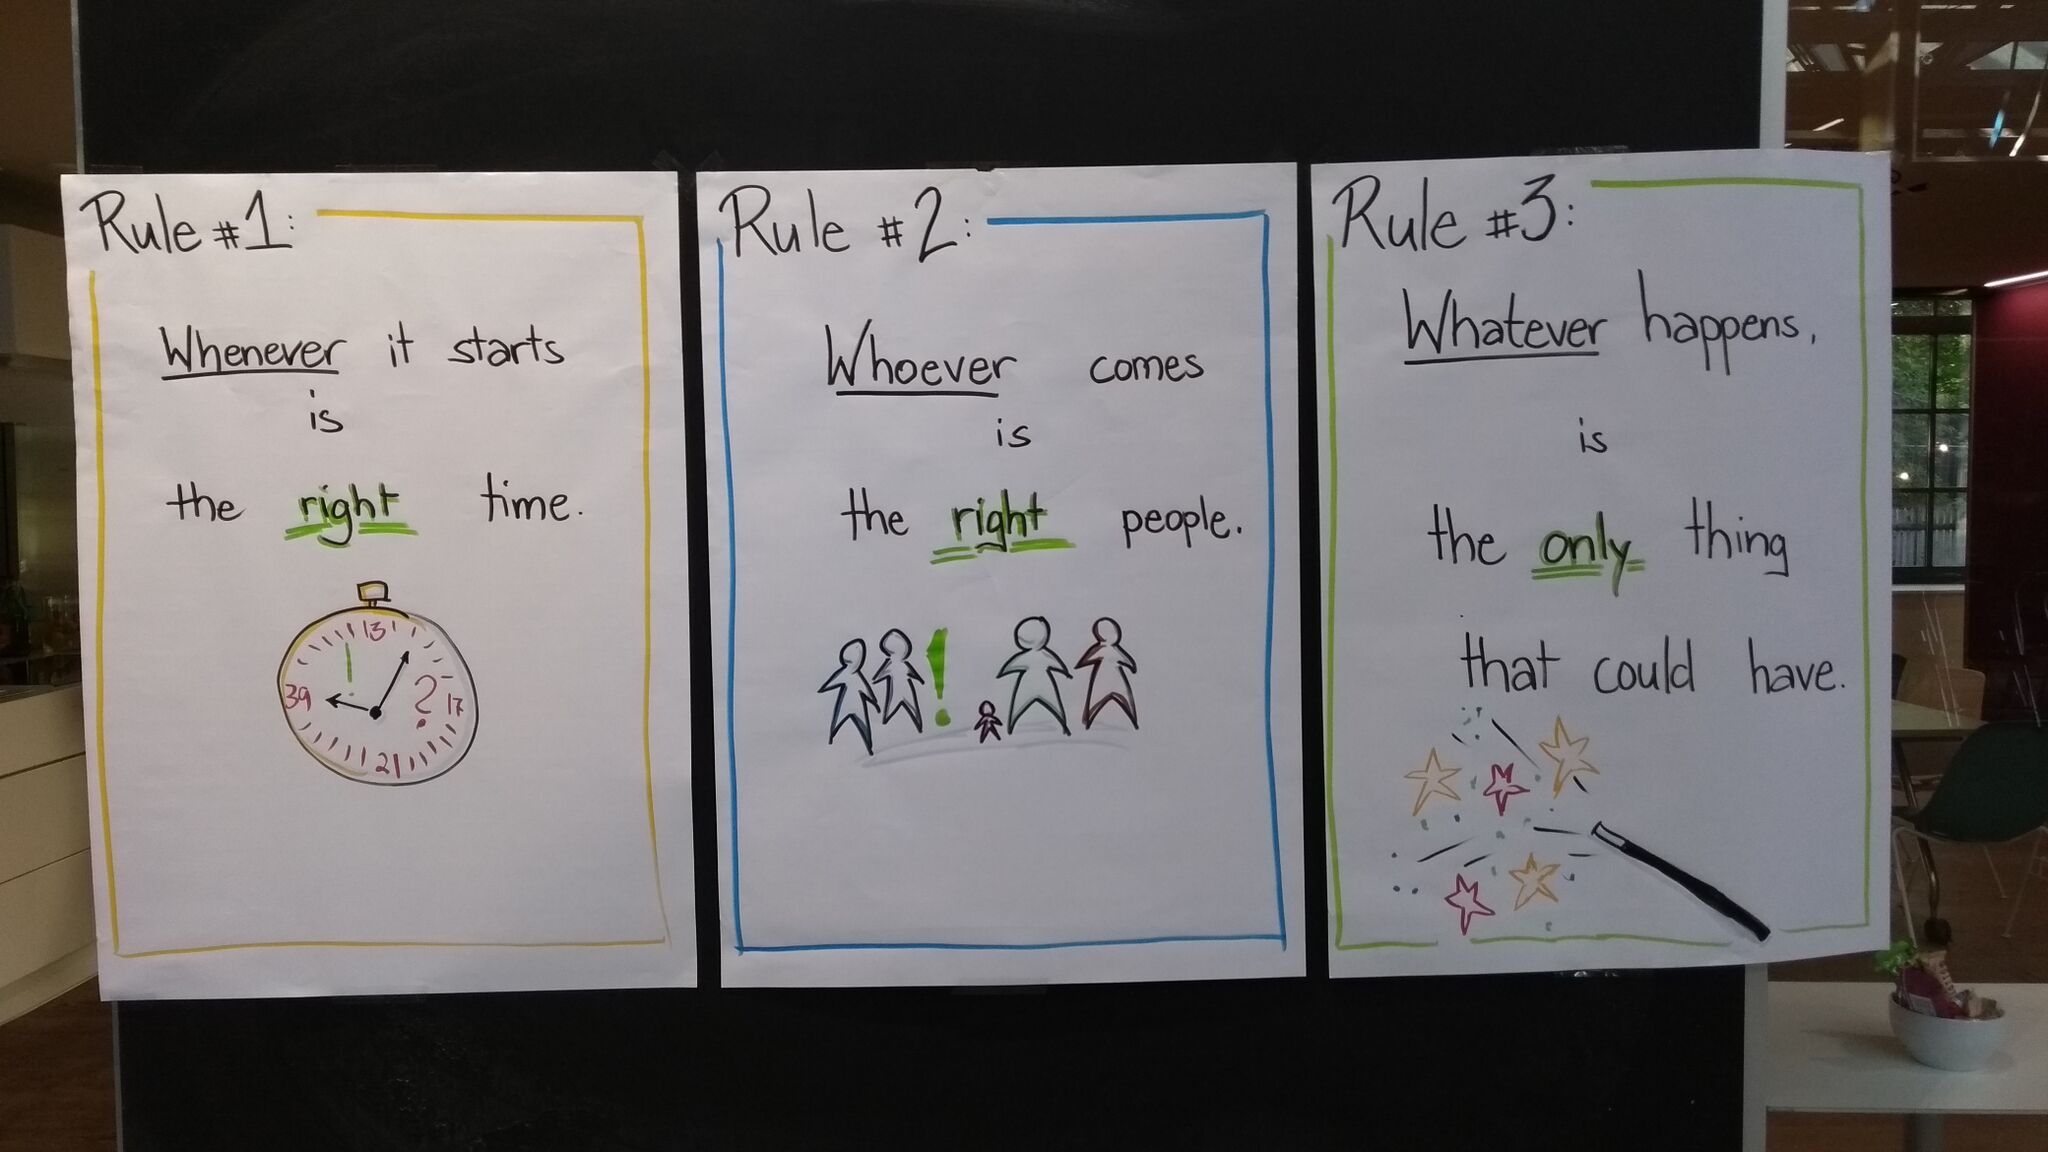 Rule #1:
Whenever it starts
is
the right time.
13
39
? 17
21
Rule #2:
Whoever comes
is
the right people.
!
Rule #3:
Whatever happens,
is
the only thing
that could have.